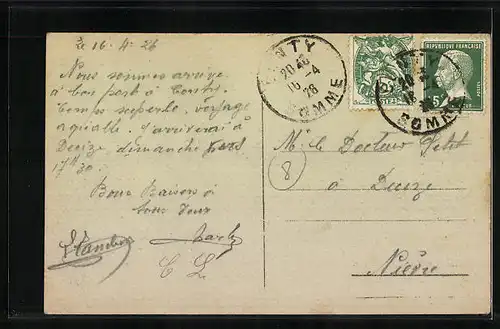 le 16. 4. 26
Nous sommes arrivés
à bon port à Conty
Temps superbe, voyage
J'arriverai à
Decize dimanche vers
17h 30.
Bons Baisers à
tous deux
CONTY
20 40
16-4
26
SOMME
REPUBLIQUE FRANÇAISE
POSTES
5c
SOMME
M. le Docteur Petit
8
à Decize
Nièvre